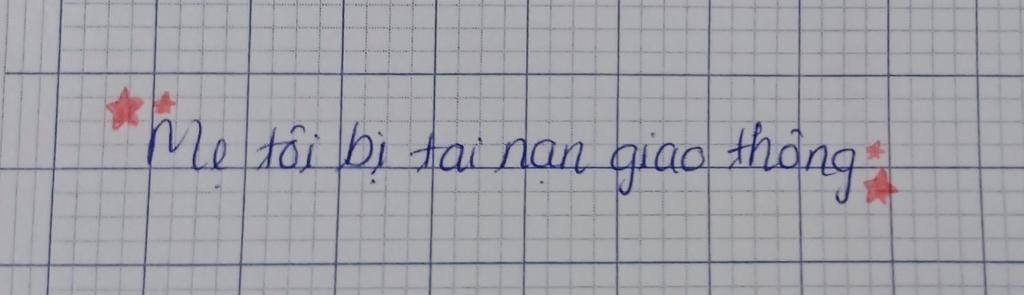 Mẹ tôi bị tai nạn giao thông